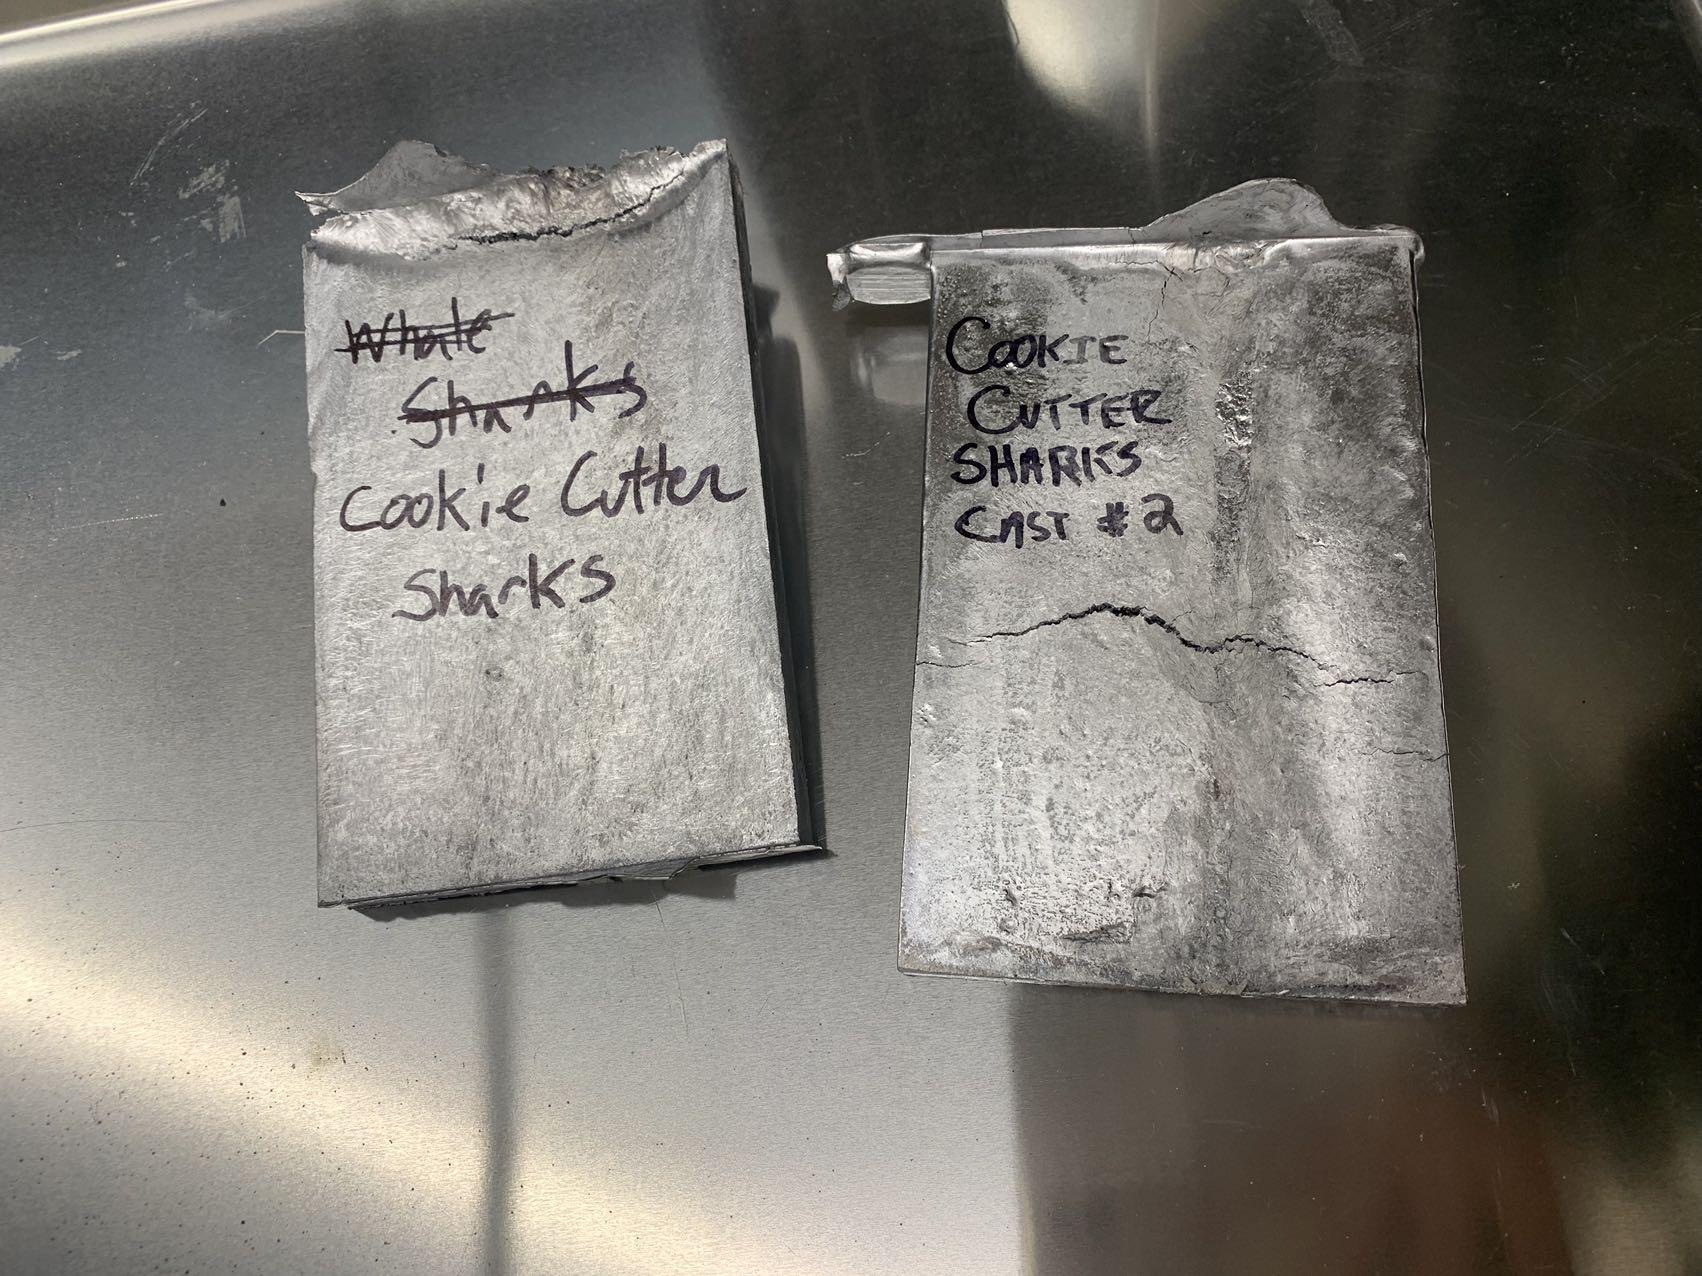 Whale
Sharks
Cookie Cutter
Sharks
COOKIE
CUTTER
SHARKS
CAST #2